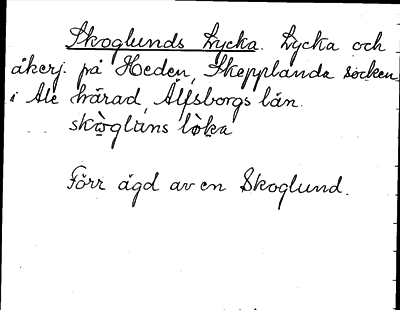 Skoglunds Lycka. Lycka och
åkerj. på Heden, Skepplanda socken
i Ale härad, Älfsborgs län.
skògläns lò̤ka
Förr ägd av en Skoglund.